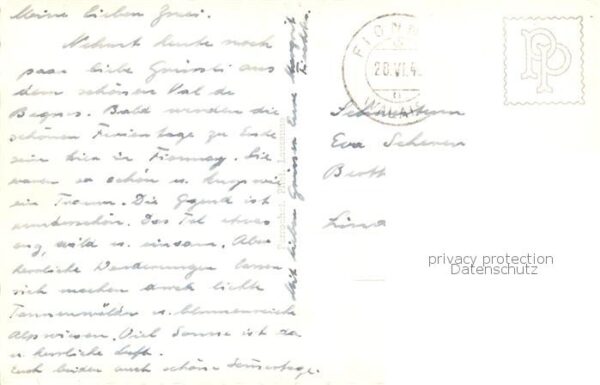 Meine Lieben Zwei.
Nehmt heute noch
paar liebe Grüessli aus
dem schönen Val de
Bagnes. Bald werden die
schönen Ferientage zu Ende
sein hier in Fionnay. Sie
waren so schön u. kurz wie
ein Traum. Die Gegend ist
wunderschön. Das Tal etwas
eng, wild u. einsam. Aber
herrliche Wanderungen lassen
sich machen durch lichte
Tannenwälder u. blumenreiche
Alpwiesen. Viel Sonne ist da
u. herrliche Luft.
Euch beiden auch schöne Sommertage.
Mit lieben Grüssen Eure
FIONNAY
20.VI.4
WALLIS
PP
Schwestern
Eva Scherrer
privacy protection
Datenschutz